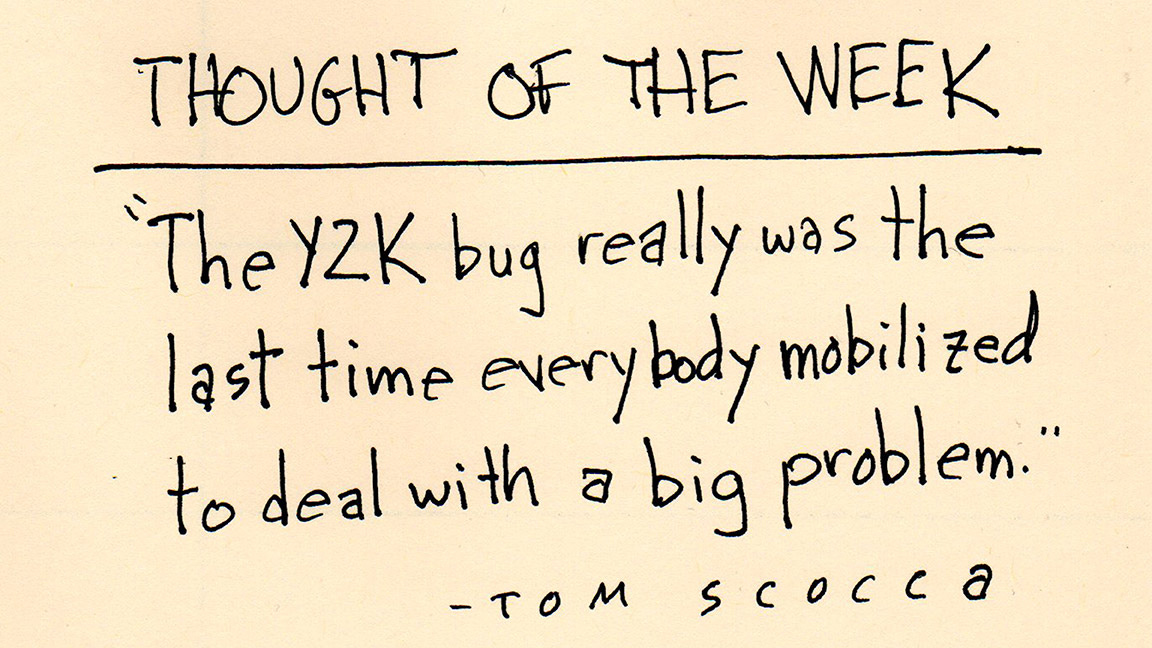 THOUGHT OF THE WEEK
"The Y2K bug really was the
last time everybody mobilized
to deal with a big problem."
- TOM SCOCCA